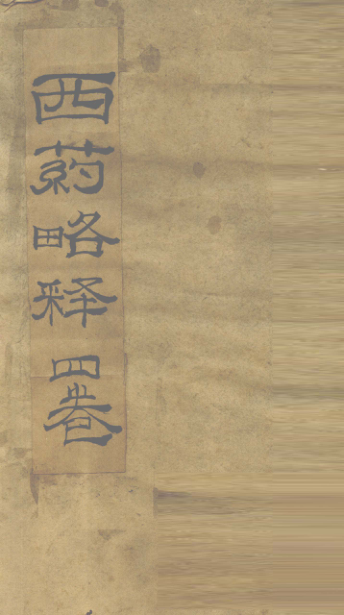 西药略释四卷